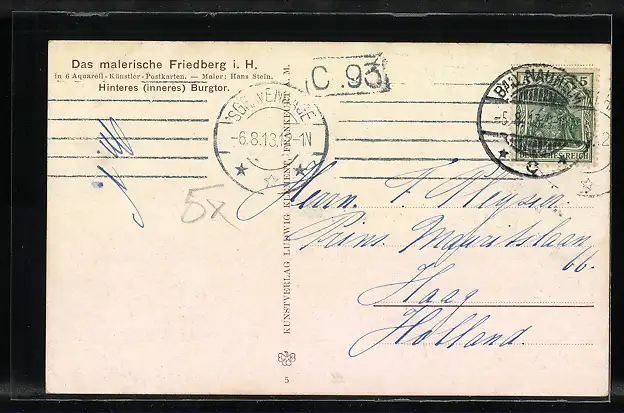 Das malerische Friedberg i. H.
in 6 Aquarell-Künstler-Postkarten. — Maler: Hans Stein.
Hinteres (inneres) Burgtor.
C. 93
'SGRAVENHAGE
-6.8.13. -1N
BAD NAUHEIM
-5.8.13.
5
5x
Herrn. F. Pleysier.
Prins Mauritslaan
66.
Haag
Holland.
KUNSTVERLAG LUDWIG KLEMENT, FRANKFURT A. M.
5